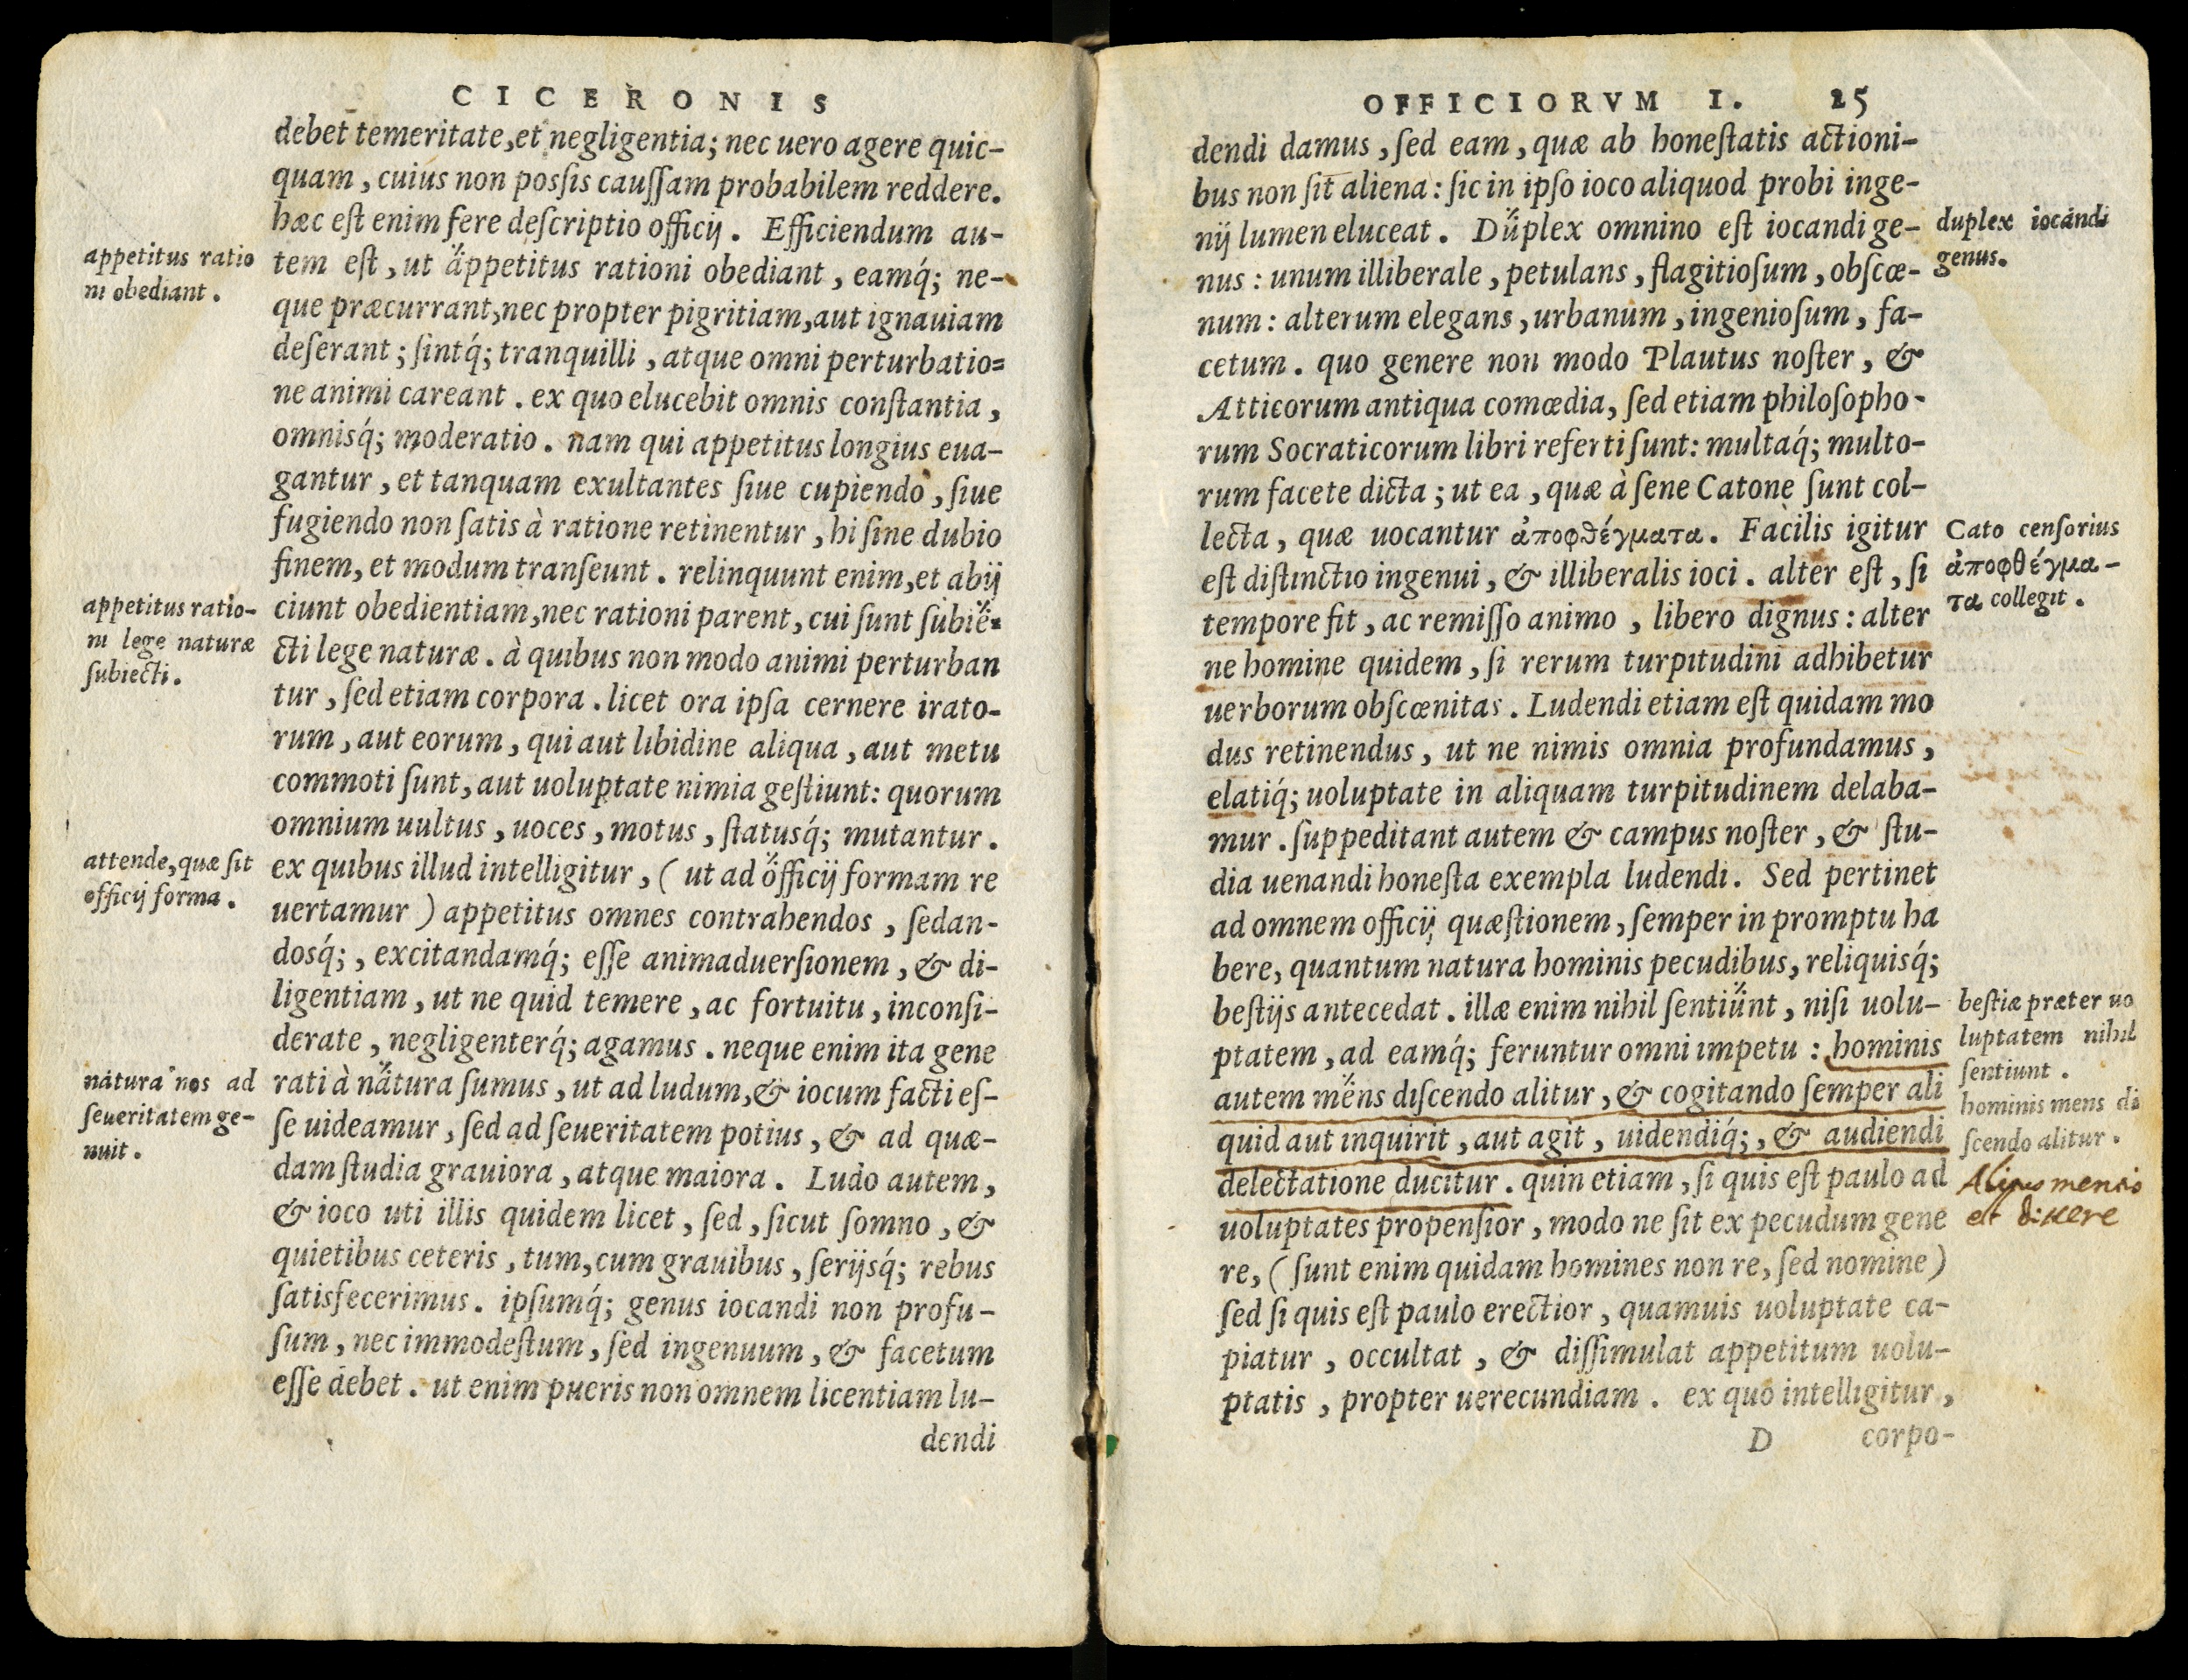 CICERONIS
debet temeritate, et negligentia; nec uero agere quic-
quam, cuius non poſsis cauſſam probabilem reddere.
hæc eſt enim fere deſcriptio officij. Efficiendum au-
appetitus ratio
ni obediant.
tem eſt, ut appetitus rationi obediant, eamq́; ne-
que præcurrant, nec propter pigritiam, aut ignauiam
deſerant; ſintq́; tranquilli, atque omni perturbatio=
ne animi careant. ex quo elucebit omnis conſtantia,
omnisq́; moderatio. nam qui appetitus longius eua-
gantur, et tanquam exultantes ſiue cupiendo, ſiue
fugiendo non ſatis à ratione retinentur, hi ſine dubio
finem, et modum tranſeunt. relinquunt enim, et abij
appetitus ratio-
ni lege naturæ
ſubiecti.
ciunt obedientiam, nec rationi parent, cui ſunt ſubie-
cti lege naturæ. à quibus non modo animi perturban
tur, ſed etiam corpora. licet ora ipſa cernere irato-
rum, aut eorum, qui aut libidine aliqua, aut metu
commoti ſunt, aut uoluptate nimia geſtiunt: quorum
omnium uultus, uoces, motus, ſtatusq́; mutantur.
attende, quæ ſit
officij forma.
ex quibus illud intelligitur, (ut ad officij formam re
uertamur) appetitus omnes contrahendos, ſedan-
dosq́;, excitandamq́; eſſe animaduerſionem, & di-
ligentiam, ut ne quid temere, ac fortuitu, inconſi-
derate, negligenterq́; agamus. neque enim ita gene
natura nos ad
ſeueritatem ge-
nuit.
rati à natura ſumus, ut ad ludum, & iocum facti eſ-
ſe uideamur, ſed ad ſeueritatem potius, & ad quæ-
dam ſtudia grauiora, atque maiora. Ludo autem,
& ioco uti illis quidem licet, ſed, ſicut ſomno, &
quietibus ceteris, tum, cum grauibus, ſerijsq́; rebus
ſatisfecerimus. ipſumq́; genus iocandi non profu-
ſum, nec immodeſtum, ſed ingenuum, & facetum
eſſe debet. ut enim pueris non omnem licentiam lu-
dendi
OFFICIORVM I. 25
dendi damus, ſed eam, quæ ab honeſtatis actioni-
bus non ſit aliena: ſic in ipſo ioco aliquod probi inge-
nij lumen eluceat. Duplex omnino eſt iocandi ge-
duplex iocandi
genus.
nus: unum illiberale, petulans, flagitioſum, obſcœ-
num: alterum elegans, urbanum, ingenioſum, fa-
cetum. quo genere non modo Plautus noſter, &
Atticorum antiqua comœdia, ſed etiam philoſopho-
rum Socraticorum libri referti ſunt: multaq́; multo-
rum facete dicta; ut ea, quæ à ſene Catone ſunt col-
lecta, quæ uocantur ἀποφθέγματα. Facilis igitur
Cato cenſorius
ἀποφθέγμα-
τα collegit.
eſt diſtinctio ingenui, & illiberalis ioci. alter eſt, ſi
tempore fit, ac remiſſo animo, libero dignus: alter
ne homine quidem, ſi rerum turpitudini adhibetur
uerborum obſcœnitas. Ludendi etiam eſt quidam mo
dus retinendus, ut ne nimis omnia profundamus,
elatiq́; uoluptate in aliquam turpitudinem delaba-
mur. ſuppeditant autem & campus noſter, & ſtu-
dia uenandi honeſta exempla ludendi. Sed pertinet
ad omnem officij quæſtionem, ſemper in promptu ha
bere, quantum natura hominis pecudibus, reliquisq́;
beſtijs antecedat. illæ enim nihil ſentiunt, niſi uolu-
beſtiæ præter uo
luptatem nihil
ſentiunt.
ptatem, ad eamq́; feruntur omni impetu: hominis
autem mens diſcendo alitur, & cogitando ſemper ali
hominis mens di
ſcendo alitur.
quid aut inquirit, aut agit, uidendiq́;, & audiendi
delectatione ducitur. quin etiam, ſi quis eſt paulo ad
mentis
est
uoluptates propenſior, modo ne ſit ex pecudum gene
re, (ſunt enim quidam homines non re, ſed nomine)
ſed ſi quis eſt paulo erectior, quamuis uoluptate ca-
piatur, occultat, & diſſimulat appetitum uolu-
ptatis, propter uerecundiam. ex quo intelligitur,
D corpo-